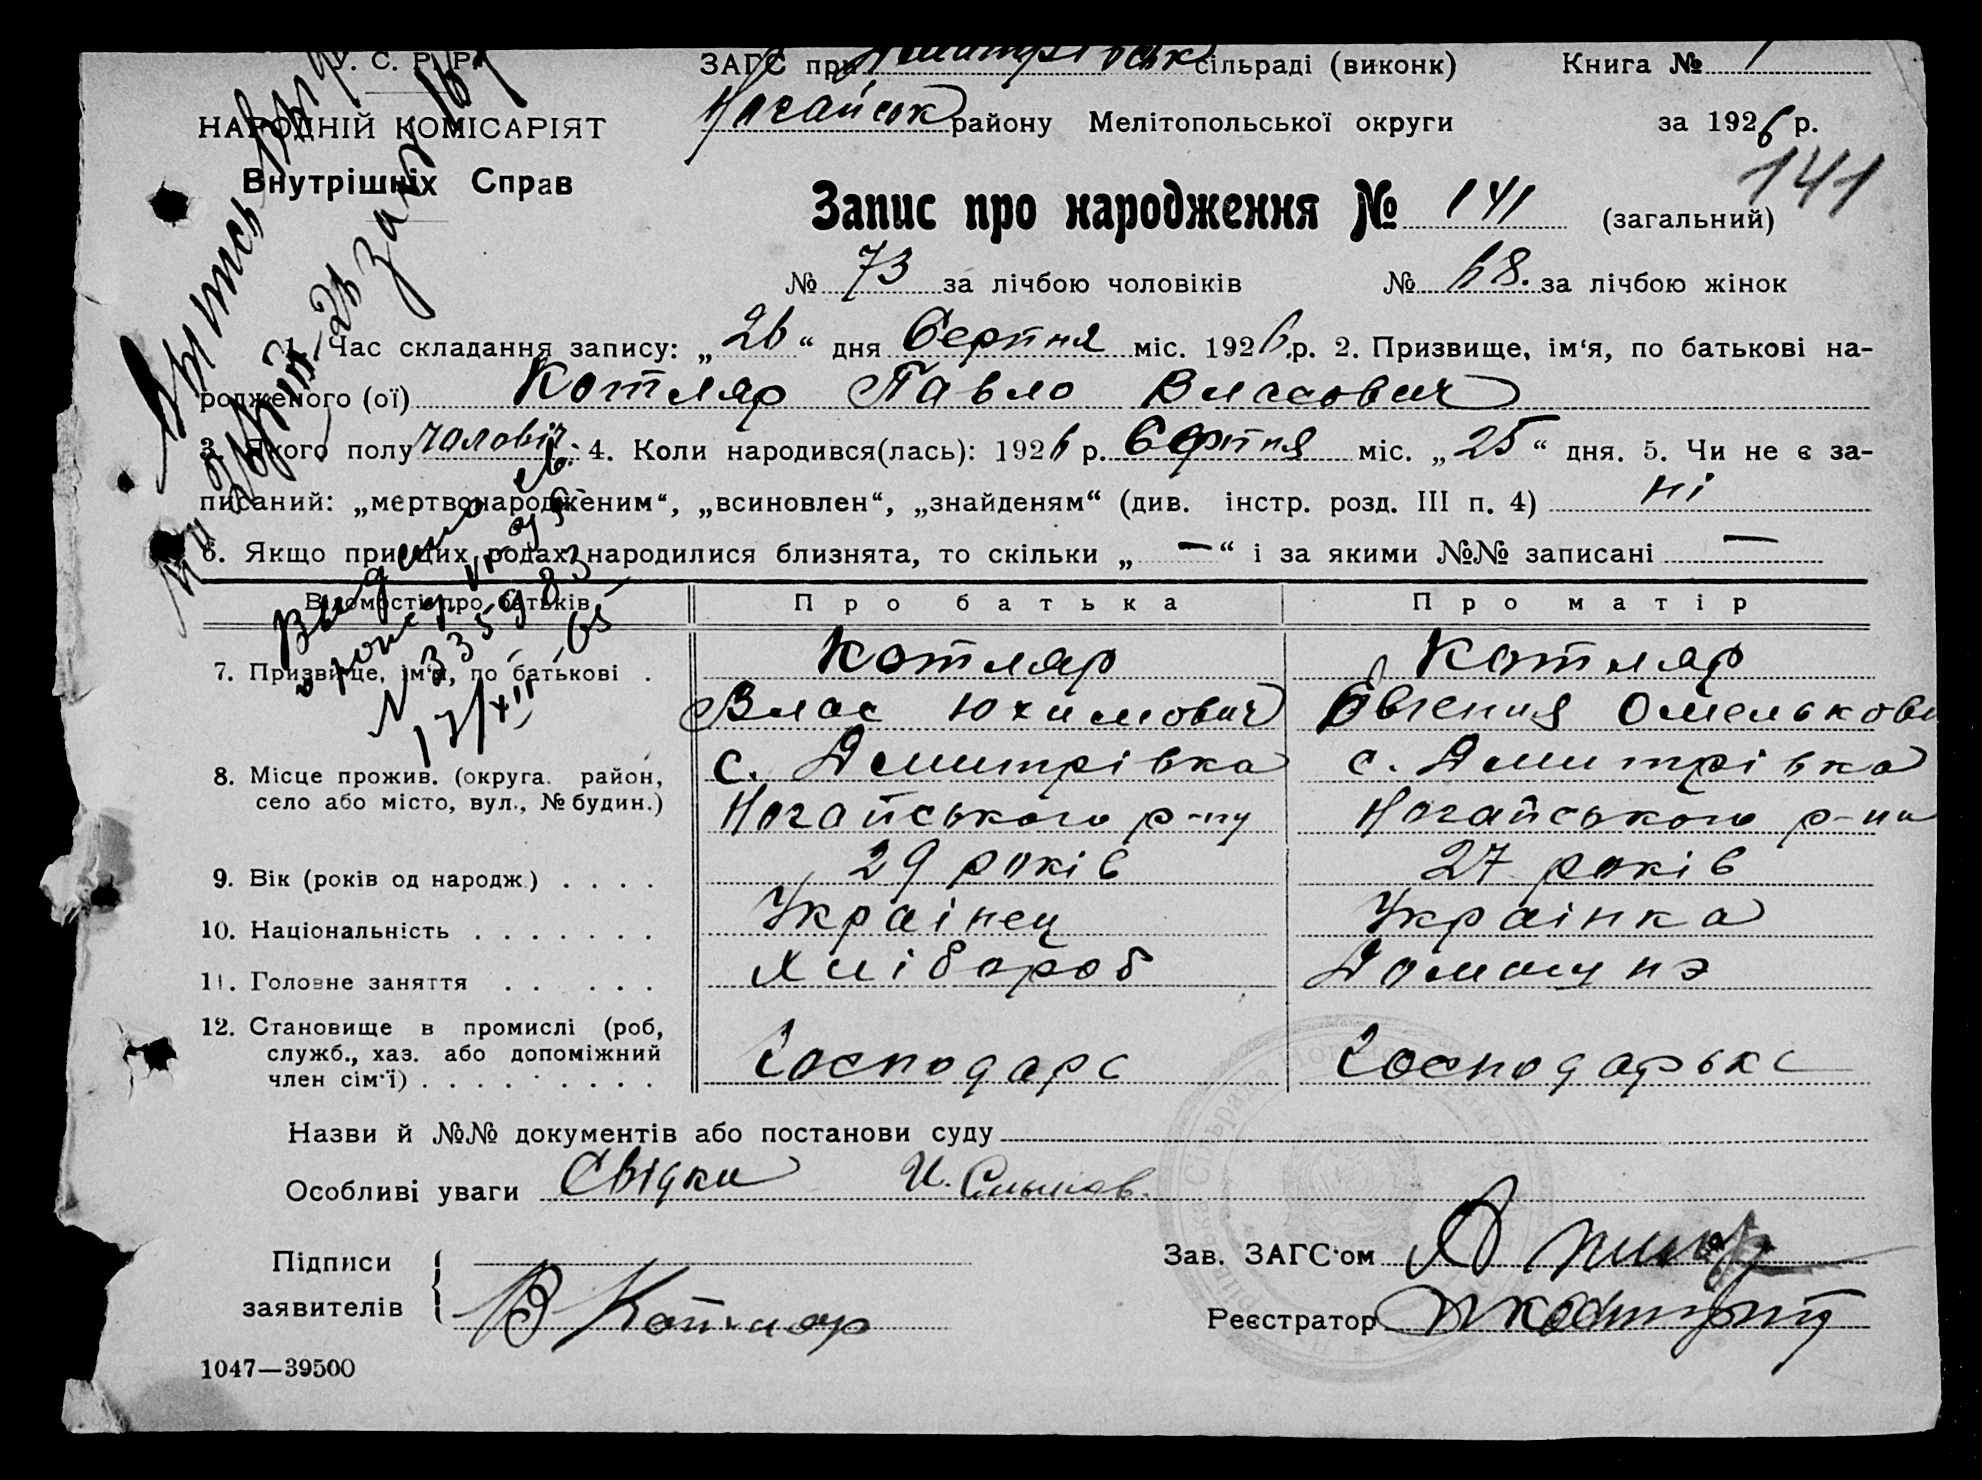 У. С. Р. Р.
НАРОДНІЙ КОМІСАРІЯТ
Внутрішніх Справ
ЗАГС при Дмитрівськ сільраді (виконк) Книга № 1
Ногайськ району Мелітопольської округи за 1926 р.
141
Запис про народження № 141 (загальний)
№ 73 за лічбою чоловіків № 68. за лічбою жінок
1. Час складання запису: „26“ дня Серпня міс. 1926 р. 2. Призвище, ім‘я, по батькові на-
родженого (ої) Котляр Павло Власович
3. Якого полу чоловіч. 4. Коли народився(лась): 1926 р. Серпня міс. „25“ дня. 5. Чи не є за-
писаний: „мертвонародженим“, „всиновлен“, „знайденям“ (див. інстр. розд. III п. 4) ні
6. Якщо при цих родах народилися близнята, то скільки „ — “ і за якими №№ записані —
Відомості про батьків Про батька Про матір
7. Призвище, ім‘я, по батькові . Котляр Котляр
Влас Юхимович Євгения Омелькови
8. Місце прожив. (округа. район, с. Дмитрівка с. Дмитрівка
село або місто, вул., № будин.) Ногайського р-ну Ногайського р-ну
9. Вік (років од народж.) . . . . 29 років 27 років
10. Національність . . . . . . . Українец Українка
11. Головне заняття . . . . . . Хлібороб Домашнэ
12. Становище в промислі (роб,
служб., хаз. або допоміжний Господарь Господарька
член сім‘ї) . . . . . . . . .
Видано
№ 335983
17/XII 65
Назви й №№ документів або постанови суду
Особливі уваги Свідки И.
Підписи
заявителів В Котляр
Зав. ЗАГС‘ом
Реєстратор
1047—39500